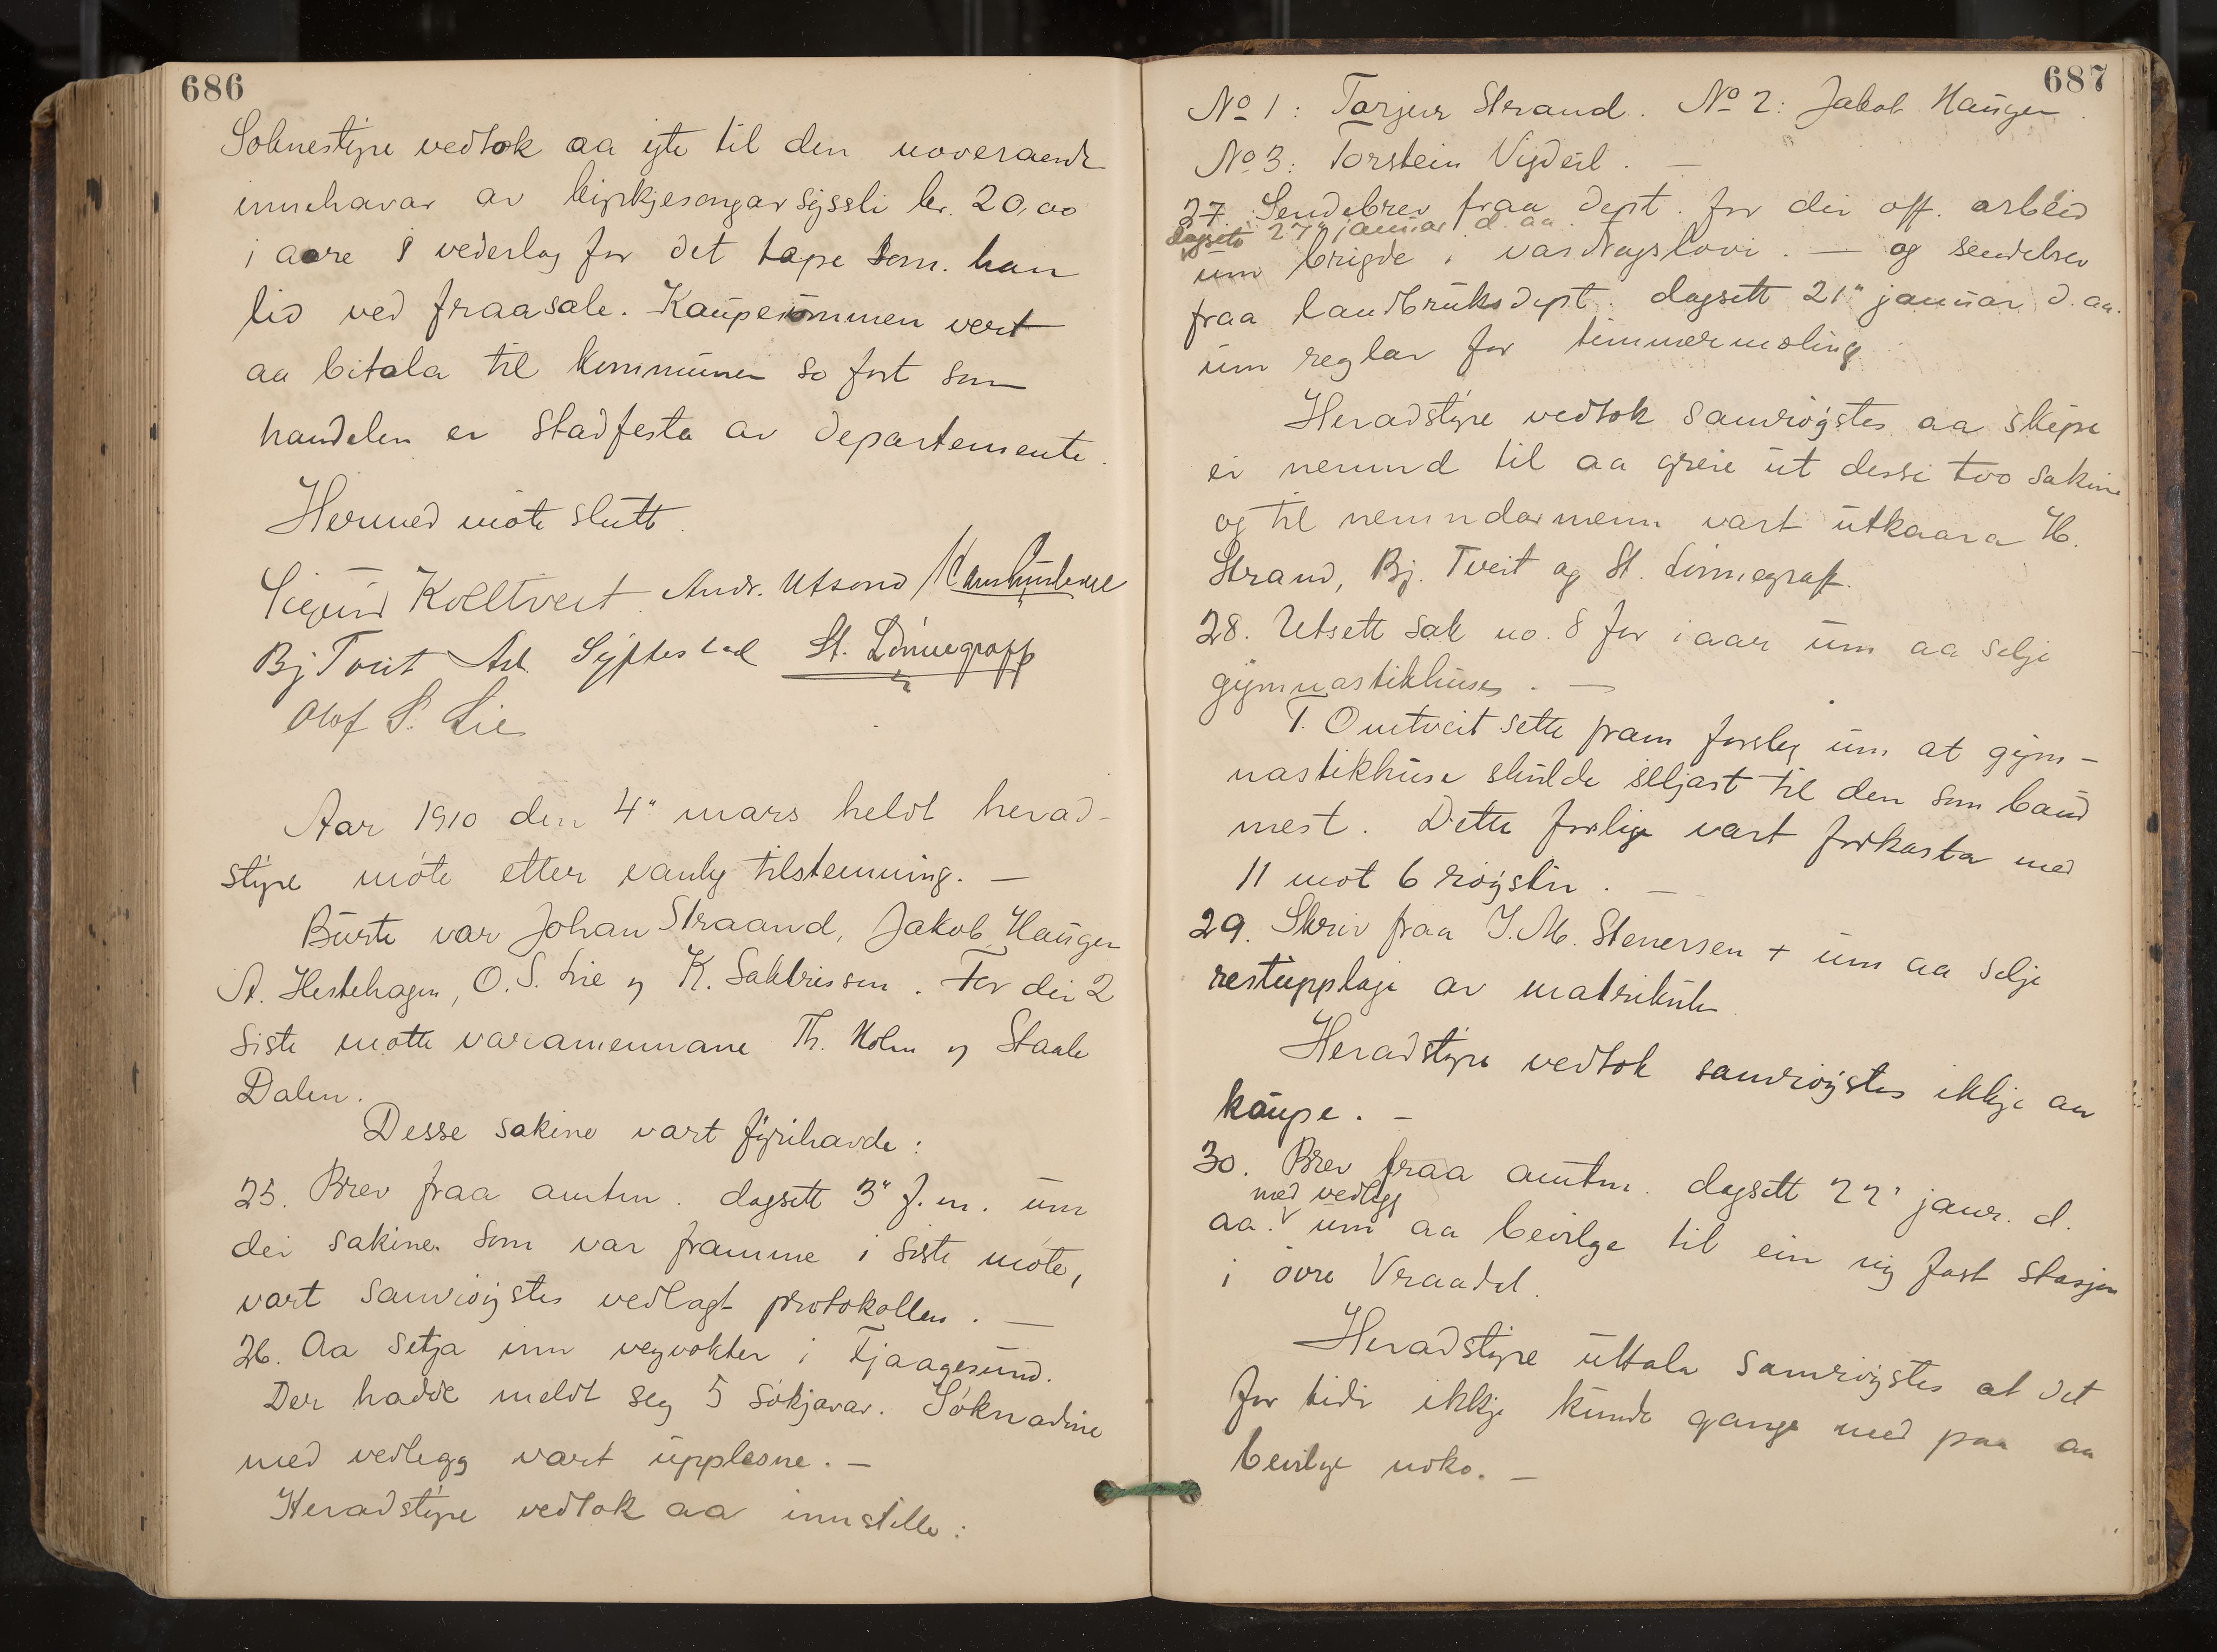 686
Soknestyre vedtok aa yte til den noverande
innehavar av kyrkjesongarsyssli kr. 20,00
i aare i vederlag for det tape som han
lid ved fraasale. Kaupesummen vert
aa bitala til kommunen so fort som
handelen er stadfesta av departemente.
Hermed møte slutt.
Sigurd Kolltveit. Andr. Utsond
Bj Tveit Asl. Syftestad St. Lønnegraff
Olof S. Lie
Aar 1910 den 4" mars heldt herad-
styre møte etter vanleg tilstemning. —
Burte var Johan Straand, Jakob Haugen
A. Hestehagen, O. S. Lie og K. Sakkrissen. For dei 2
siste møtte varamennane Th. Holm og Staale
Dalen.
Desse sakine vart fyrihavde:
25. Brev fraa amtm. dagsett 3" f. m. um
dei sakine som var framme i siste møte,
vart samrøystes vedlagt protokollen. —
26. Aa setja inn vegvokter i Fjaagesund.
Der hadde meldt seg 5 søkjarar. Søknadine
med vedlegg vart upplesne. —
Heradstyre vedtok aa innstille:
687
No 1: Tarjei Strand. No 2: Jakob Haugen.
No 3: Torstein Vigdeil. —
27. Sendebrev fraa Dept. for dei off. arbeid
dagsett 27" januar d. aa.
um brigde i vasdragslovi. — og sendebrev
fraa landbruksdept. dagsett 21" januar d. aa.
um reglar for timmermøling
Heradstyre vedtok samrøystes aa skipe
ei nemnd til aa greie ut desse tvo sakine
og til nemndarmenn vart utkaara H.
Strand, Bj. Tveit og St. Lønnegraff.
28. Utsett sak no. 8 for iaar um aa selje
gymnastikhuset. —
T. Omtveit sette fram forslag um at gym-
nastikhuse skulde seljast til den som baud
mest. Dette forslage vart forkasta med
11 mot 6 røyster. —
29. Skriv fraa J. M. Stenersen + um aa selje
restupplage av matrikulen
Heradstyre vedtok samrøystes ikkje aa
kaupe. —
30. Brev fraa amtm. dagsett 22' janr. d.
med vedlegg
aa. um aa bevilge til ein ny fast stasjon
i øvre Vraadal.
Heradstyre uttala samrøystes at det
for tidi ikkje kunde gange med paa aa
bevilge noko. —